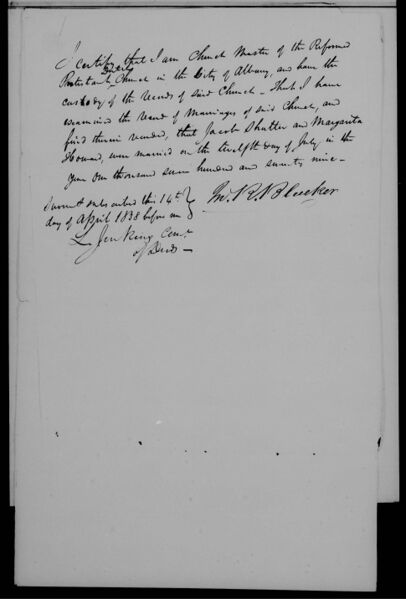 I certify that I am Church Master of the Reformed
Protestant Dutch Church in the City of Albany, and have the
custody of the Records of said Church - That I have
examined the Record of Marriages of said Church, and
find therein recorded, that Jacob Shutter and Margarita
Howard, were married on the twelfth day of July in the
year One thousand seven hundred and seventy nine -
Jno. R. Bleecker
Sworn & subscribed this 14th
day of April 1838 before me
L Jenkins Comr
of Deeds -